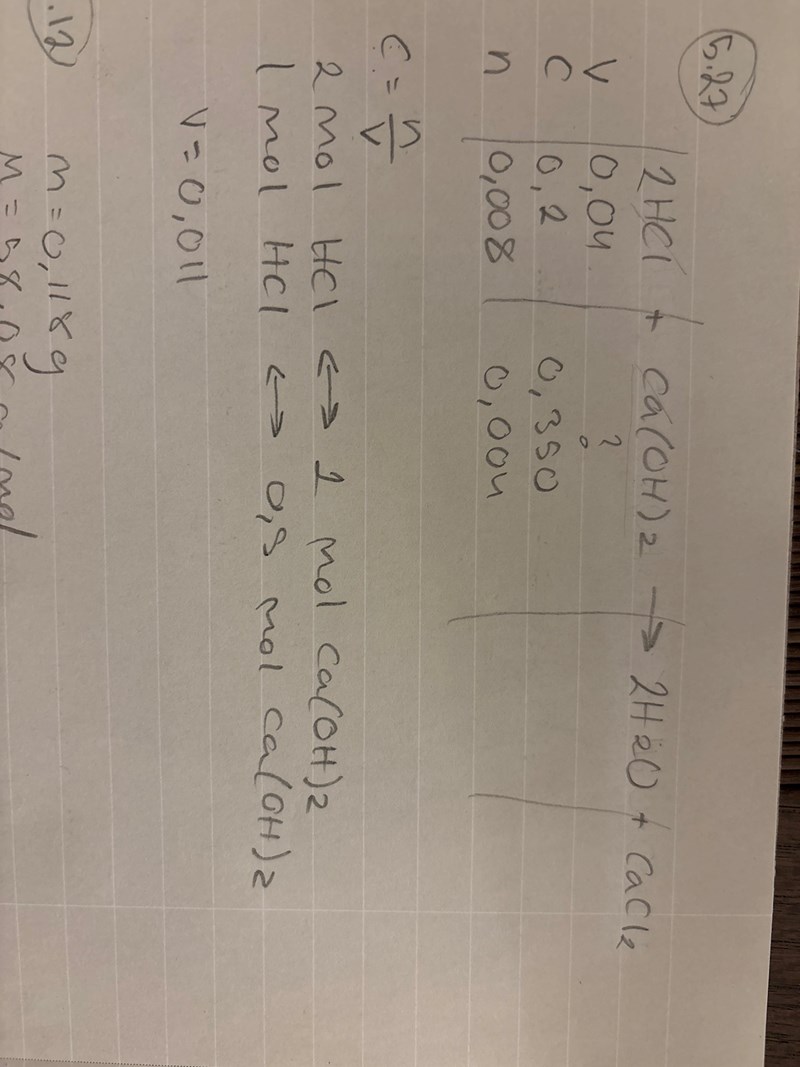 5.27
2HCl + Ca(OH)2 → 2H2O + CaCl2
V 0,04 ?
C 0,2 0,350
n 0,008 0,004
C = n/V
2 mol HCl ↔ 1 mol Ca(OH)2
1 mol HCl ↔ 0,5 mol Ca(OH)2
V = 0,011
.12
m = 0,118 g